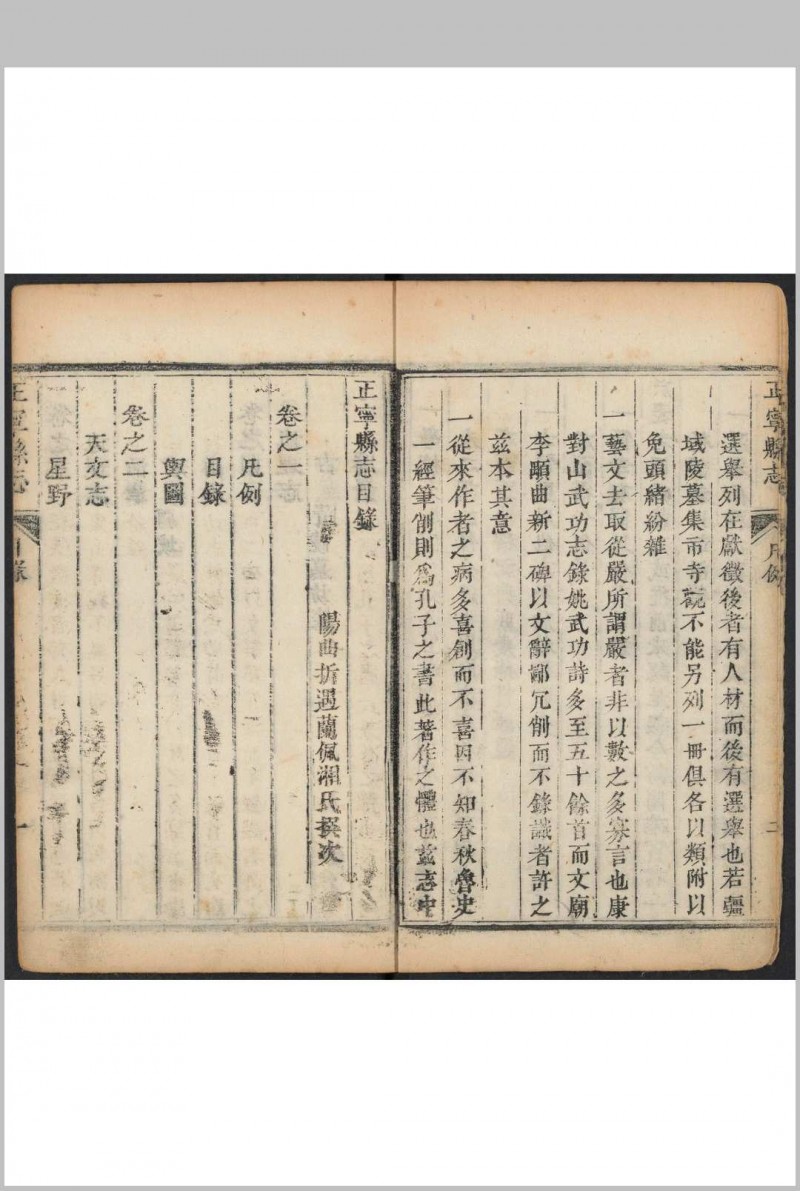 正寧縣志
凡例
二
選舉列在獻徵後者有人材而後有選舉也若疆
域陵墓集市寺觀不能另列一冊俱各以類附以
免頭緒紛雜
一藝文去取從嚴所謂嚴者非以數之多寡言也康
對山武功志錄姚武功詩多至五十餘首而文廟
李頤曲新二碑以文辭鄙冗削而不錄識者許之
茲本其意
一從來作者之病多喜創而不喜因不知春秋魯史
一經筆削則為孔子之書此著作之體也茲志中
正寧縣志目錄
陽曲折遇蘭佩湘氏撰次
卷之一
凡例
目錄
輿圖
卷之二
天文志
星野
正寧縣志
目錄
一